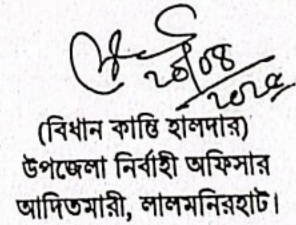 ২০/০৪
২০২৫
(বিধান কান্তি হালদার)
উপজেলা নির্বাহী অফিসার
আদিতমারী, লালমনিরহাট।